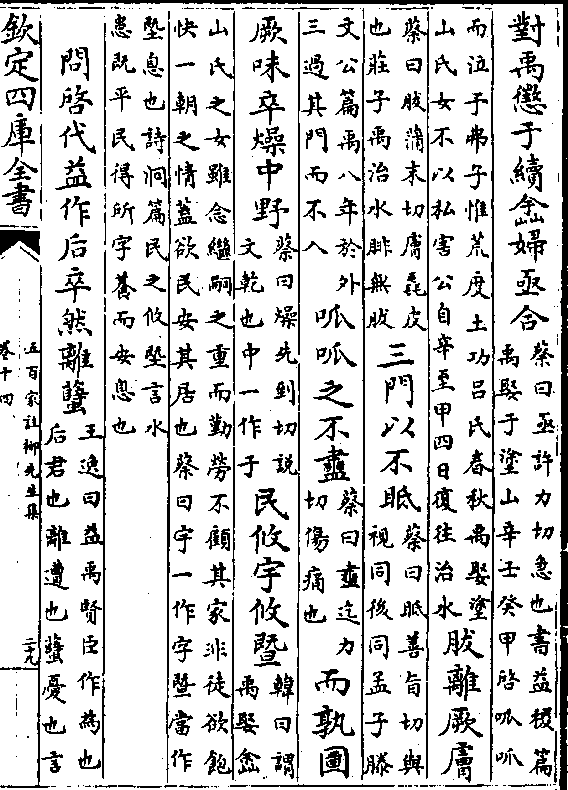 對禹懲于續嵞婦亟合蔡曰亟許力切急也書益稷篇
禹娶于塗山辛壬癸甲啓呱呱
而泣于弗子惟荒度土功吕氏春秋禹娶塗
山氏女不以私害公自辛至甲四日復往治水胈離厥膚
蔡曰胈蒲末切膚毳皮
也莊子禹治水腓無胈三門以不眡蔡曰眡善旨切與
視同後同孟子滕
文公篇禹八年於外
三過其門而不入呱呱之不衋蔡曰衋迄力
切傷痛也而孰圖
厥味卒燥中野蔡曰燥先到切説
文乾也中一作于民攸宇攸暨韓曰謂
禹娶嵞
山氏之女雖念繼嗣之重而勤勞不顧其家非徒欲飽
快一朝之情蓋欲民安其居也蔡曰宇一作字暨當作
塈息也詩洞篇民之攸塈言水
患既平民得所字養而安息也
問啓代益作后卒然離蠥王逸曰益禹賢臣作為也
后君也離遭也蠥憂也言
欽定四庫全書
五百家註柳先生集
卷十四
二九